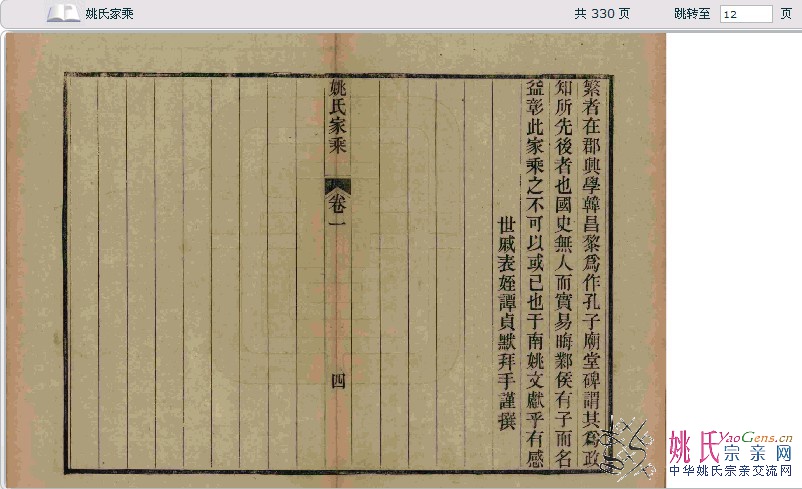 姚氏家乘
共 330 页
跳转至 12 页
繁者在郡興學韓昌黎爲作孔子廟堂碑謂其爲政
知所先後者也國史無人而實易晦鄴侯有子而名
益彰此家乘之不可以或已也于南姚文獻乎有感
世戚表姪譚貞默拜手謹撰
姚氏家乘
卷一
四
姚氏YaoGens.cn
宗亲网
中华姚氏宗亲交流网